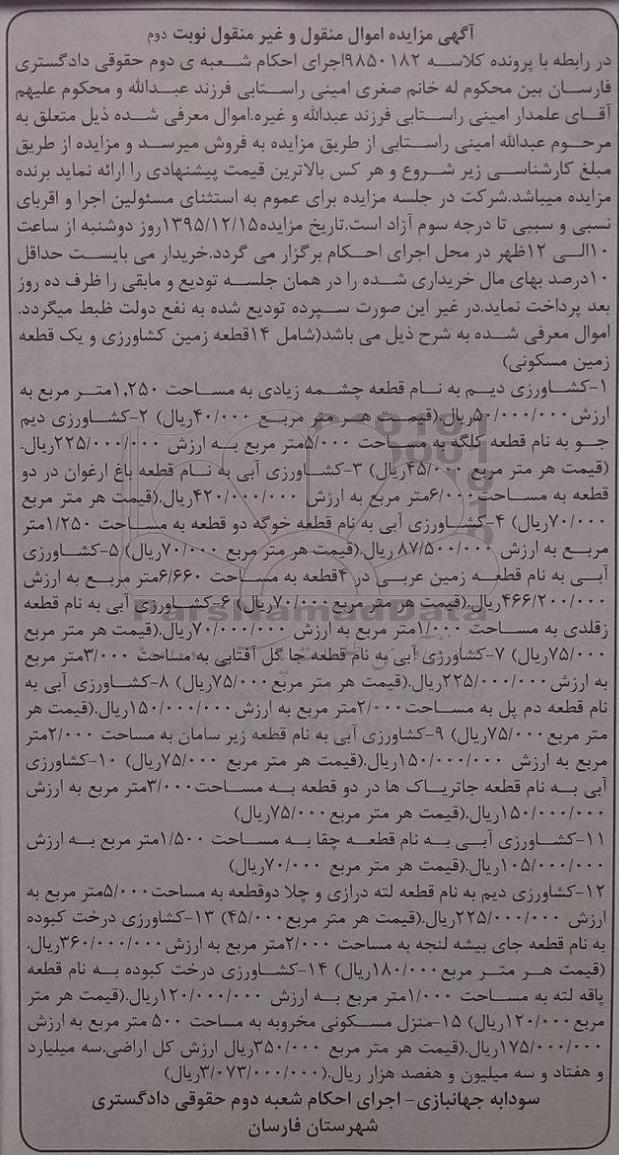 آگهی مزایده اموال منقول و غیر منقول نوبت دوم
در رابطه با پرونده کلاسه ۹۸۵۰۱۸۲اجرای احکام شعبه ی دوم حقوقی دادگستری
فارسان بین محکوم له خانم صغری امینی راستابی فرزند عبدالله و محکوم علیهم
آقای علمدار امینی راستابی فرزند عبدالله و غیره.اموال معرفی شده ذیل متعلق به
مرحوم عبدالله امینی راستابی از طریق مزایده به فروش میرسد و مزایده از طریق
مبلغ کارشناسی زیر شروع و هر کس بالاترین قیمت پیشنهادی را ارائه نماید برنده
مزایده میباشد.شرکت در جلسه مزایده برای عموم به استثنای مسئولین اجرا و اقربای
نسبی و سببی تا درجه سوم آزاد است.تاریخ مزایده۱۳۹۵/۱۲/۱۵روز دوشنبه از ساعت
۱۰الی ۱۲ظهر در محل اجرای احکام برگزار می گردد.خریدار می بایست حداقل
۱۰درصد بهای مال خریداری شده را در همان جلسه تودیع و مابقی را ظرف ده روز
بعد پرداخت نماید.در غیر این صورت سپرده تودیع شده به نفع دولت ظبط میگردد.
اموال معرفی شده به شرح ذیل می باشد(شامل ۱۴قطعه زمین کشاورزی و یک قطعه
زمین مسکونی)
۱-کشاورزی دیم به نام قطعه چشمه زیادی به مساحت ۱,۲۵۰متر مربع به
ارزش۵۰/۰۰۰/۰۰۰ریال.(قیمت هر متر مربع ۴۰/۰۰۰ریال) ۲-کشاورزی دیم
جو به نام قطعه کلگه به مساحت ۵/۰۰۰متر مربع به ارزش ۲۲۵/۰۰۰/۰۰۰ریال.
(قیمت هر متر مربع ۴۵/۰۰۰ریال) ۳-کشاورزی آبی به نام قطعه باغ ارغوان در دو
قطعه به مساحت۶/۰۰۰متر مربع به ارزش ۴۲۰/۰۰۰/۰۰۰ریال.(قیمت هر متر مربع
۷۰/۰۰۰ریال) ۴-کشاورزی آبی به نام قطعه خوگه دو قطعه به مساحت ۱/۲۵۰متر
مربع به ارزش ۸۷/۵۰۰/۰۰۰ ریال.(قیمت هر متر مربع ۷۰/۰۰۰ریال) ۵-کشاورزی
آبی به نام قطعه زمین عربی در ۴قطعه به مساحت ۶/۶۶۰متر مربع به ارزش
۴۶۶/۲۰۰/۰۰۰ریال.(قیمت هر متر مربع ۷۰/۰۰۰ریال) ۶-کشاورزی آبی به نام قطعه
زقلدی به مساحت ۱/۰۰۰متر مربع به ارزش ۷۰/۰۰۰/۰۰۰ریال.(قیمت هر متر مربع
۷۵/۰۰۰ریال) ۷-کشاورزی آبی به نام قطعه جا گل آفتابی به مساحت ۳/۰۰۰متر مربع
به ارزش۲۲۵/۰۰۰/۰۰۰ریال.(قیمت هر متر مربع۷۵/۰۰۰ریال) ۸-کشاورزی آبی به
نام قطعه دم پل به مساحت۲/۰۰۰متر مربع به ارزش۱۵۰/۰۰۰/۰۰۰ریال.(قیمت هر
متر مربع۷۵/۰۰۰ریال) ۹-کشاورزی آبی به نام قطعه زیر سامان به مساحت ۲/۰۰۰متر
مربع به ارزش ۱۵۰/۰۰۰/۰۰۰ریال.(قیمت هر متر مربع ۷۵/۰۰۰ریال) ۱۰-کشاورزی
آبی به نام قطعه جاتریاک ها در دو قطعه به مساحت۳/۰۰۰متر مربع به ارزش
۱۵۰/۰۰۰/۰۰۰ریال.(قیمت هر متر مربع۷۵/۰۰۰ریال)
۱۱-کشاورزی آبی به نام قطعه چقا به مساحت ۱/۵۰۰متر مربع به ارزش
۱۰۵/۰۰۰/۰۰۰ریال.(قیمت هر متر مربع ۷۰/۰۰۰ریال)
۱۲-کشاورزی دیم به نام قطعه لته درازی و چلا دوقطعه به مساحت۵/۰۰۰متر مربع به
ارزش ۲۲۵/۰۰۰/۰۰۰ریال.(قیمت هر متر مربع۴۵/۰۰۰) ۱۳-کشاورزی درخت کبوده
به نام قطعه جای بیشه لنجه به مساحت ۲/۰۰۰متر مربع به ارزش۳۶۰/۰۰۰/۰۰۰ریال.
(قیمت هر متر مربع۱۸۰/۰۰۰ریال) ۱۴-کشاورزی درخت کبوده به نام قطعه
پاقه لته به مساحت ۱/۰۰۰متر مربع به ارزش ۱۲۰/۰۰۰/۰۰۰ریال.(قیمت هر متر
مربع۱۲۰/۰۰۰ریال) ۱۵-منزل مسکونی مخروبه به مساحت ۵۰۰ متر مربع به ارزش
۱۷۵/۰۰۰/۰۰۰ریال.(قیمت هر متر مربع ۳۵۰/۰۰۰ریال ارزش کل اراضی.سه میلیارد
و هفتاد و سه میلیون و هفصد هزار ریال.(۳/۰۷۳/۰۰۰/۰۰۰ریال)
سودابه جهانبازی- اجرای احکام شعبه دوم حقوقی دادگستری
شهرستان فارسان
ParsNamadData